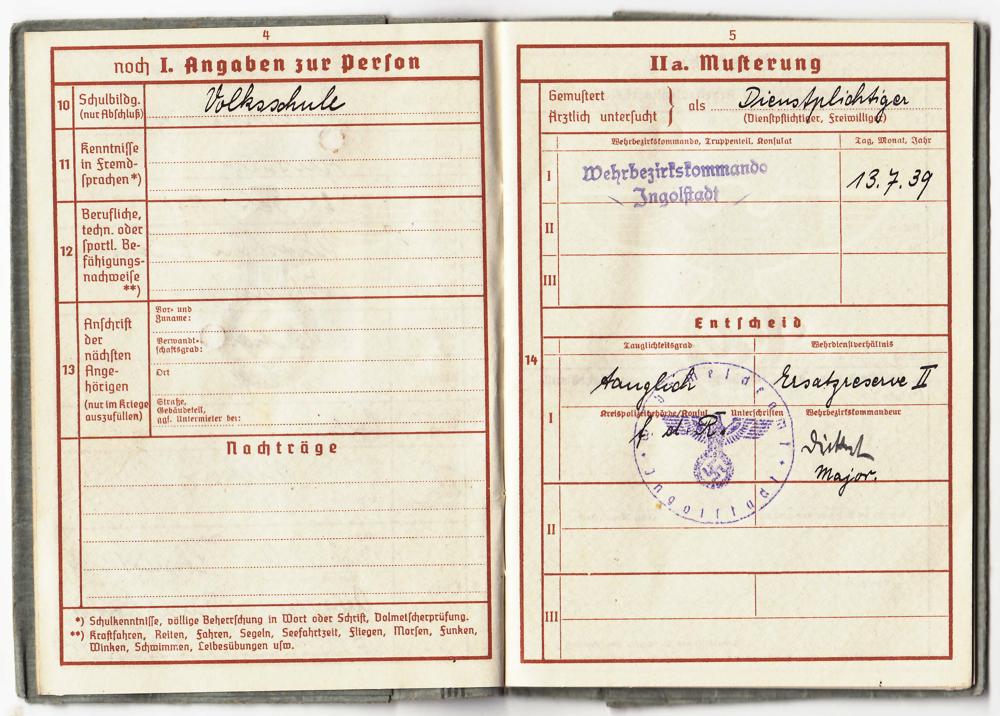 4
noch I. Angaben zur Person
10 Schulbildg. (nur Abschluß)
Volksschule
11 Kenntnisse
in Fremd-
sprachen*)
12 Berufliche,
techn. oder
sportl. Be-
fähigungs-
nachweise
**)
13 Anschrift
der
nächsten
Ange-
hörigen
(nur im Kriege
auszufüllen)
Vor- und
Zuname:
Verwandt-
schaftsgrad:
Ort
Straße,
Gebäudeteil,
ggf. Untermieter bei:
Nachträge
*) Schulkenntnisse, völlige Beherrschung in Wort oder Schrift, Dolmetscherprüfung.
**) Kraftfahren, Reiten, Fahren, Segeln, Seefahrtzeit, Fliegen, Morsen, Funken,
Winken, Schwimmen, Leibesübungen usw.
5
IIa. Musterung
Gemustert
Ärztlich untersucht } als Dienstplichtiger
(Dienstpflichtiger, Freiwilliger)
Wehrbezirkskommando, Truppenteil, Konsulat
Tag, Monat, Jahr
I
Wehrbezirkskommando
Ingolstadt
13.7.39
II
III
Entscheid
14
Tauglichkeitsgrad
Wehrdienstverhältnis
tauglich
Ersatzreserve II
I
Kreispolizeibehörde/Konsul
Unterschriften
Wehrbezirkskommandeur
f. d. R.
Major.
Wehrmeldeamt
Ingolstadt
II
III